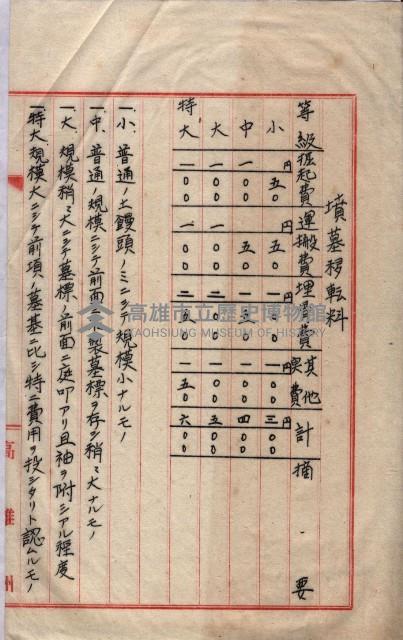 墳墓移転料
等級 掘起費 運搬費 埋葬費 其他実費 計 摘要
小 円五〇 五〇 一〇〇 一〇〇 三円〇〇
中 一〇〇 五〇 一五〇 一〇〇 四〇〇
大 一〇〇 一〇〇 二〇〇 一〇〇 五〇〇
特大 一〇〇 一〇〇 二五〇 一五〇 六〇〇
一、小、普通ノ土饅頭ノミニシテ規模小ナルモノ
一、中、普通ノ規模ニシテ前面 製墓標ヲ存シ稍々大ナルモノ
一、大、規模稍々大ニシテ墓標ノ前面ニ庭叩アリ且袖ヲ附シアル程度
一、特大、規模大ニシテ前項ノ墓基ニ比シ特ニ費用ヲ投シタリト認ムルモノ
高雄州
高雄市立歷史博物館
KAOHSIUNG MUSEUM OF HISTORY